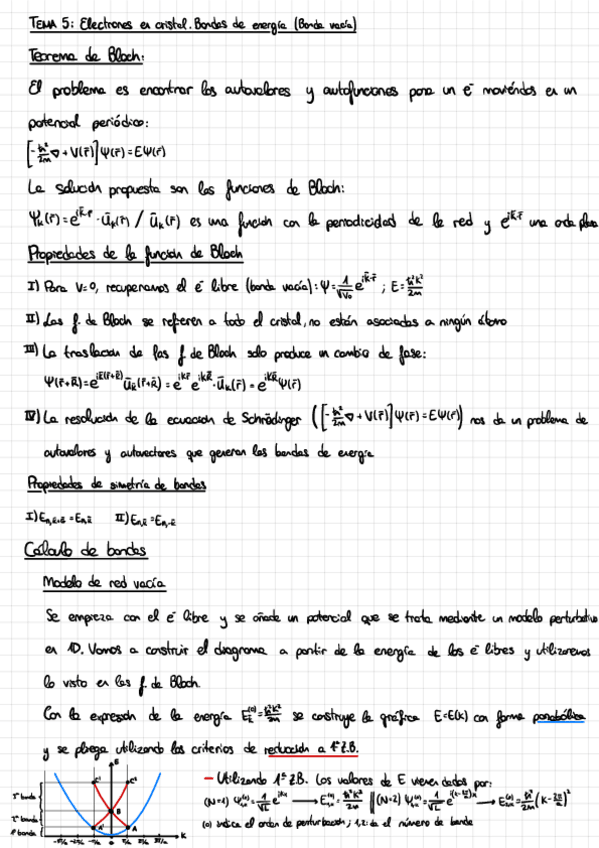 TEMA 5: Electrones en cristal. Bandas de energía (Banda vacía)
Teorema de Bloch:
El problema es encontrar los autovalores y autofunciones para un e⁻ moviéndos en un
potencial periódico:
[-ħ²/2m ∇ + V(r̄)] Ψ(r̄) = EΨ(r̄)
La solución propuesta son las funciones de Bloch:
Ψₖ(r̄) = e^{ik̄·r̄} · ūₖ(r̄) / ūₖ(r̄) es una función con la periodicidad de la red y e^{ik̄·r̄} una onda plana
Propiedades de la función de Bloch
I) Para V=0, recuperamos el e⁻ libre (banda vacía): Ψ = 1/√V₀ e^{ik̄·r̄} ; E = ħ²k²/2m
II) Las f. de Bloch se refieren a todo el cristal, no están asociadas a ningún átomo
III) La traslación de las f. de Bloch solo produce un cambio de fase:
Ψ(r̄+R̄) = e^{ik̄(r̄+R̄)} ūₖ(r̄+R̄) = e^{ik̄r̄} e^{ik̄R̄} · ūₖ(r̄) = e^{ik̄R̄} Ψ(r̄)
IV) La resolución de la ecuación de Schrödinger ([-ħ²/2m ∇ + V(r̄)] Ψ(r̄) = EΨ(r̄)) nos da un problema de
autovalores y autovectores que generan las bandas de energía
Propiedades de simetría de bandas
I) E_{n,k̄+Ḡ} = E_{n,k̄} II) E_{n,k̄} = E_{n,-k̄}
Cálculo de bandas
Modelo de red vacía
Se empieza con el e⁻ libre y se añade un potencial que se trata mediante un modelo perturbativo
en 1D. Vamos a construir el diagrama a partir de la energía de los e⁻ libres y utilizaremos
lo visto en las f. de Bloch.
Con la expresión de la energía E_k^{(0)} = ħ²k²/2m se construye la gráfica E=E(k) con forma parabólica
y se pliega utilizando los criterios de reducción a 1ª Z.B.
— Utilizando 1ª Z.B. Los valores de E vienen dados por:
(N=1) Ψ^{(0)} = 1/√L e^{ikx} → E^{(0)} = ħ²k²/2m || (N=2) Ψ^{(0)} = 1/√L e^{i(k-2π/a)x} → E^{(0)} = ħ²/2m (k-2π/a)²
(0) indica el orden de perturbación; 1,2: da el número de banda
E
3ª banda
2ª banda
1ª banda
C' C
B
A' A
k
-3π/a -2π/a -π/a π/a 2π/a 3π/a